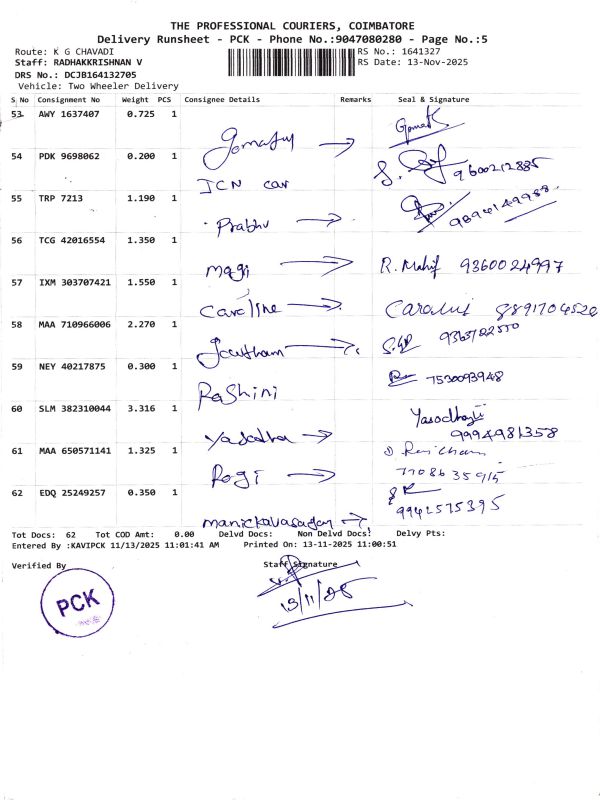 THE PROFESSIONAL COURIERS, COIMBATORE
Delivery Runsheet - PCK - Phone No.:9047080280 - Page No.:5
Route: K G CHAVADI RS No.: 1641327
Staff: RADHAKKRISHNAN V RS Date: 13-Nov-2025
DRS No.: DCJB164132705
Vehicle: Two Wheeler Delivery
S No Consignment No Weight PCS Consignee Details Remarks Seal & Signature
53 AWY 1637407 0.725 1
54 PDK 9698062 0.200 1 JCN car 9600212885
55 TRP 7213 1.190 1 Prabhu
56 TCG 42016554 1.350 1 magi R. Mahif 9360024997
57 IXM 303707421 1.550 1 Caroline 8891704520
58 MAA 710966006 2.270 1 Gautham
59 NEY 40217875 0.300 1 Rashini 7530093948
60 SLM 382310044 3.316 1 Yasodha 9994981358
61 MAA 650571141 1.325 1 Rogi
62 EDQ 25249257 0.350 1 manickavasagan 9942575395
Tot Docs: 62 Tot COD Amt: 0.00 Delvd Docs: Non Delvd Docs: Delvy Pts:
Entered By :KAVIPCK 11/13/2025 11:01:41 AM Printed On: 13-11-2025 11:00:51
Verified By Staff Signature
PCK
13/11/25